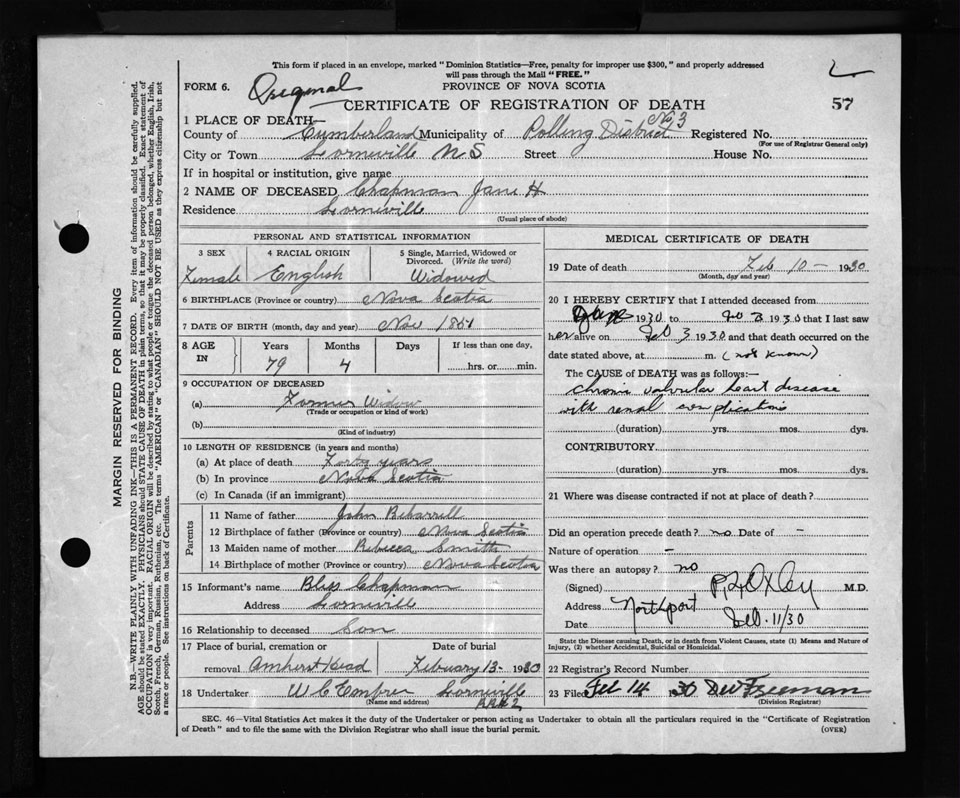 This form if placed in an envelope, marked "Dominion Statistics—Free, penalty for improper use $300," and properly addressed
will pass through the Mail "FREE."
FORM 6. Original PROVINCE OF NOVA SCOTIA
CERTIFICATE OF REGISTRATION OF DEATH 57
1 PLACE OF DEATH—
County of Cumberland Municipality of Polling District No 3 Registered No.
(For use of Registrar General only)
City or Town Lorneville N S Street House No.
If in hospital or institution, give name
2 NAME OF DECEASED Chapman Jane H
Residence Lorneville
(Usual place of abode)
PERSONAL AND STATISTICAL INFORMATION
3 SEX 4 RACIAL ORIGIN 5 Single, Married, Widowed or
Divorced. (Write the word)
Female English Widowed
6 BIRTHPLACE (Province or country) Nova Scotia
7 DATE OF BIRTH (month, day and year) Nov
8 AGE IN Years Months Days If less than one day,
79 4 hrs. or min.
9 OCCUPATION OF DECEASED
(a) Widow
(Trade or occupation or kind of work)
(b)
(Kind of industry)
10 LENGTH OF RESIDENCE (in years and months)
(a) At place of death Forty years
(b) In province Nova Scotia
(c) In Canada (if an immigrant)
Parents
11 Name of father John
12 Birthplace of father (Province or country) Nova Scotia
13 Maiden name of mother Rebecca Smith
14 Birthplace of mother (Province or Country) Nova Scotia
15 Informant's name Chapman
Address Lorneville
16 Relationship to deceased Son
17 Place of burial, cremation or Date of burial
removal Amherst Head February 13 1930
18 Undertaker W C Lorneville
(Name and address) RR# 2
MEDICAL CERTIFICATE OF DEATH
19 Date of death Feb 10 - 1930
(Month, day and year)
20 I HEREBY CERTIFY that I attended deceased from
1930 to 3 1930 that I last saw
her alive on Feb 3 1930 and that death occurred on the
date stated above, at m. (not known)
The CAUSE of DEATH was as follows:—
chronic valvular heart disease
with renal complications
(duration) yrs. mos. dys.
CONTRIBUTORY.
(duration) yrs. mos. dys.
21 Where was disease contracted if not at place of death?
Did an operation precede death? no Date of —
Nature of operation —
Was there an autopsy? no
(Signed) Oxley M.D.
Address Northport
Date Feb. 11/30
State the Disease causing Death, or in death from Violent Causes, state (1) Means and Nature of
Injury, (2) whether Accidental, Suicidal or Homicidal.
22 Registrar's Record Number
23 Filed Feb 14 1930 Freeman
(Division Registrar)
SEC. 46—Vital Statistics Act makes it the duty of the Undertaker or person acting as Undertaker to obtain all the particulars required in the "Certificate of Registration
of Death" and to file the same with the Division Registrar who shall issue the burial permit. (OVER)
MARGIN RESERVED FOR BINDING
N.B.—WRITE PLAINLY WITH UNFADING INK—THIS IS A PERMANENT RECORD. Every item of information should be carefully supplied.
AGE should be stated EXACTLY. PHYSICIANS should STATE CAUSE OF DEATH in plain terms, so that it may be properly classified. Exact statement of
OCCUPATION is very important. RACIAL ORIGIN will be described by stating to what people or tongue the deceased person belonged, whether English, Irish,
Scotch, French, German, Russian, Ruthenian, etc. The terms "AMERICAN" or "CANADIAN" SHOULD NOT BE USED as they express citizenship but not
a race or people. See instructions on back of Certificate.